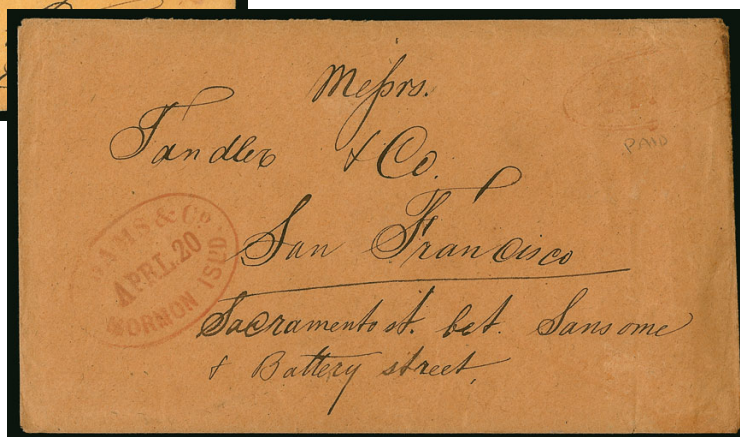 Messrs.
Tandler & Co.
San Francisco
Sacramento st. bet. Sansome
& Battery street,
AMS & Co.
APRL. 20
MORMON ISLD.
PAID